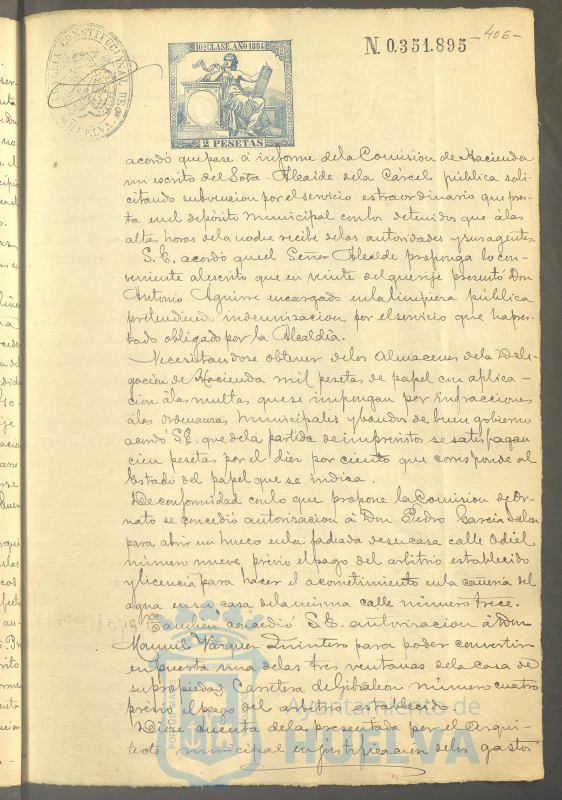 -406-
N. 0.351.895
10ª CLASE. AÑO 1884
2 PESETAS
ALCALDIA CONSTITUCIONAL DE HUELVA
acordó que pase á informe dela Comision de Hacienda
un escrito del Sota-Alcaide dela Cárcel pública soli-
citando subvencion por el servicio estraordinario que pres-
ta en el depósito municipal con los detenidos que álas
altas horas dela noche recibe delas autoridades y sus agentes.
S.E. acordó que el Señor Alcalde proponga lo con-
veniente al escrito que en veinte del que rije presentó Don
Antonio Aguirre encargado en la limpieza pública
pretendiendo indemnizacion por el servicio que ha pres-
tado obligado por la Alcaldía.
Necesitandose obtener delos Almacenes dela Dele-
gación de Hacienda mil pesetas de papel con aplica-
cion álas multas que se impongan por infracciones
álas ordenanzas municipales y bandos de buen gobierno
acordó S.E. que dela partida de imprevistos se satisfagan
cien pesetas por el diez por ciento que corresponde al
Estado del papel que se indica.
De conformidad con lo que propone la Comision de Or-
nato se concedió autorizacion á Don Pedro Garcia
para abrir un hueco en la fachada de su casa calle Odiel
número nueve, prévio el pago del arbitrio establecido
y licencia para hacer el acometimiento en la cañeria del
agua en su casa dela misma calle número trece.
Tambien concedió S.E. autorizacion á Don
Manuel Vazquez Quintero para poder convertir
en puerta una delas tres ventanas dela casa de
su propiedad Carretera de Gibraleon número cuatro
prévio el pago del arbitrio establecido.
Dióse cuenta dela presentada por el Arqui-
tecto municipal en justificacion delos gastos
Ayuntamiento de
HUELVA